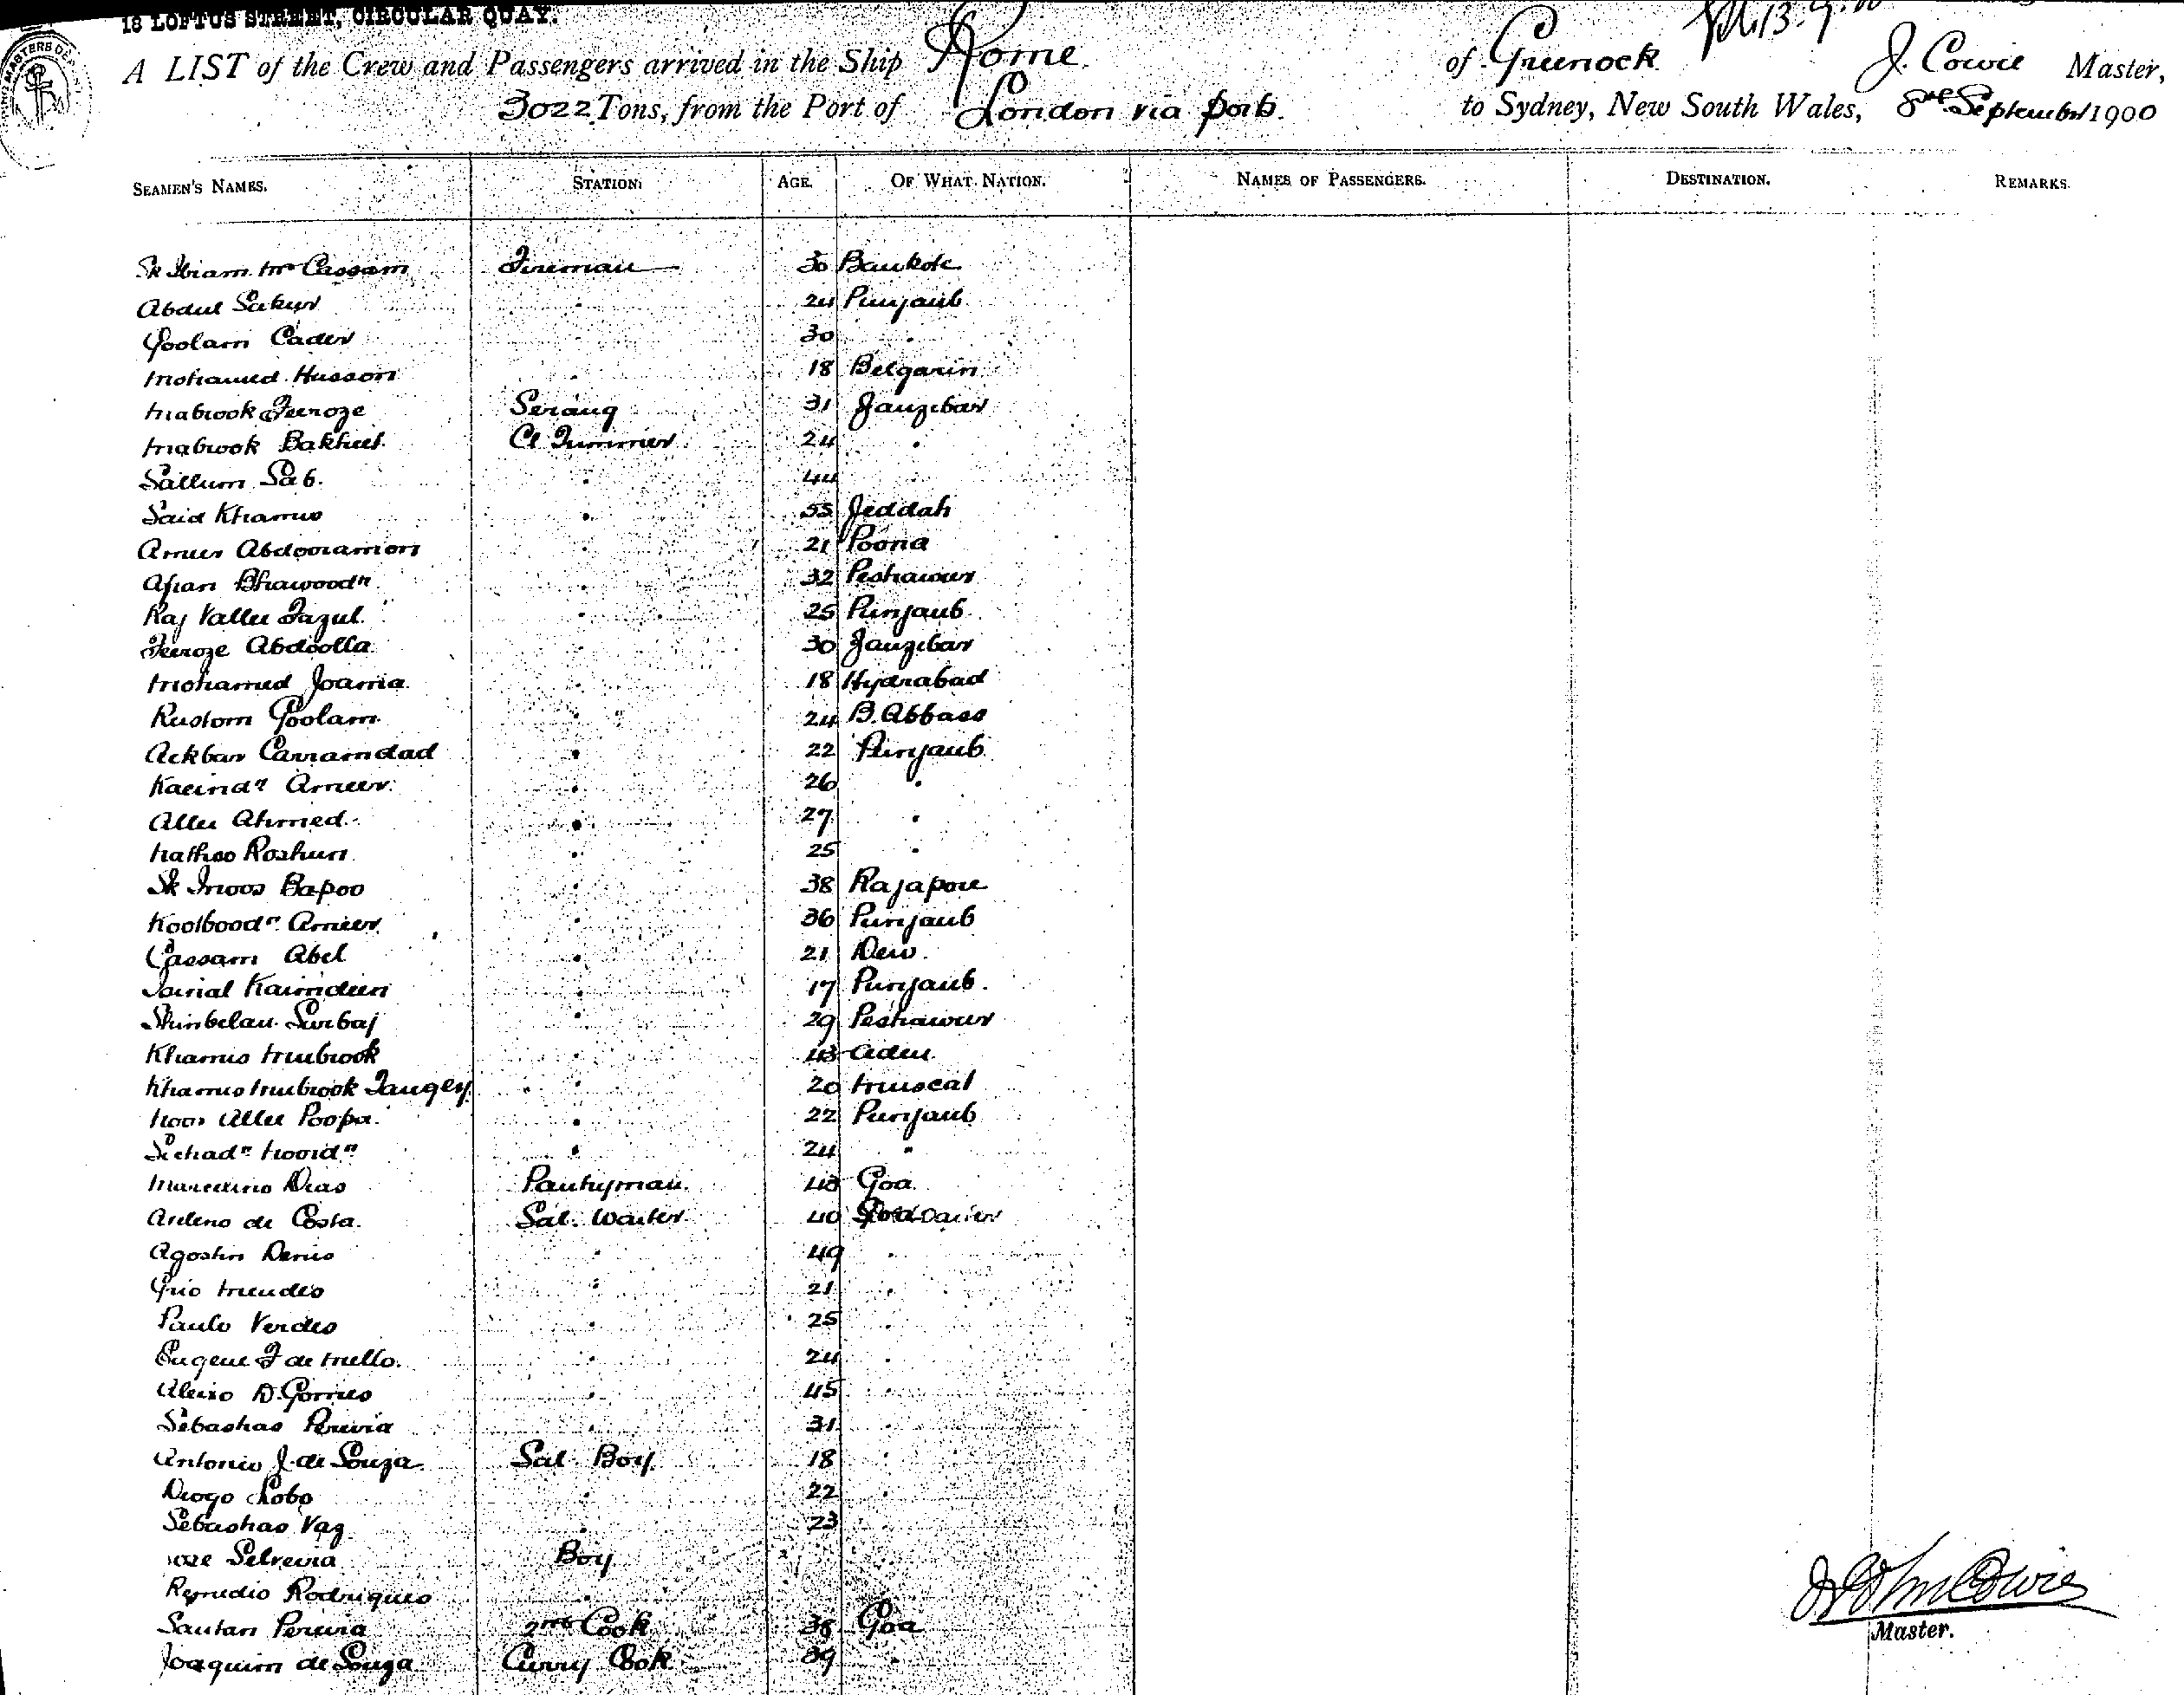 18 LOFTUS STREET, CIRCULAR QUAY.
A LIST of the Crew and Passengers arrived in the Ship Rome of Greenock J. Cowie Master,
3022 Tons, from the Port of London via ports to Sydney, New South Wales, 8th September 1900
SEAMEN'S NAMES. STATION. AGE. OF WHAT NATION. NAMES OF PASSENGERS. DESTINATION. REMARKS.
Cassam Fireman 30 Bankote
Abdul Sakur " 24 Punjaub
Goolam Cader 30 "
Mohamed Husson " 18 Belgarin
Mabrook Feeroze Serang 31 Zanzibar
Mabrook Bakheet Cl Trimmer 24 "
Sallum Sab. " 44
Said Khamis " 55 Jeddah
Ameer Abdooramon " 21 Poona
Afian Bhawoodn " 32 Peshawur
Raj Vallee Fazul " 25 Punjaub
Feeroze Abdoolla " 30 Zanzibar
Mohamed Joama " 18 Hydrabad
Rustom Goolam " 24 B. Abbass
Ackbar Carramdad " 22 Punjaub
Ameer " 26 "
Allee Ahmed " 27 "
Nathoo Roshun " 25 "
Sk Bapoo " 38 Rajapore
Koolboodn Ameer " 36 Punjaub
Cassam Abel " 21 Dew
Kaimdeen " 17 Punjaub
Surbaj " 29 Peshawur
Khamis Mubrook " 43 Aden
Khamis Mubrook " 20 Muscat
Noor Allee Poopa " 22 Punjaub
" 24 "
Marcelino Dias Pantryman 40 Goa
de Costa Sal. Waiter 40
Agostin Denis " 49 "
Mendes " 21 "
Paulo Verdes " 25 "
Eugene F de Mello " 24 "
Aleixo D. Gomes " 45 "
Sebastiao Pereira " 31 "
Antonio J. de Souza Sal. Boy 18 "
Diogo Lobo " 22 "
Sebastiao Vaz " 23
Selveira Boy
Remedio Rodrigues "
Santan Pereira 2nd Cook 38 Goa
Joaquim de Souza Curry Cook 39 "
Master.